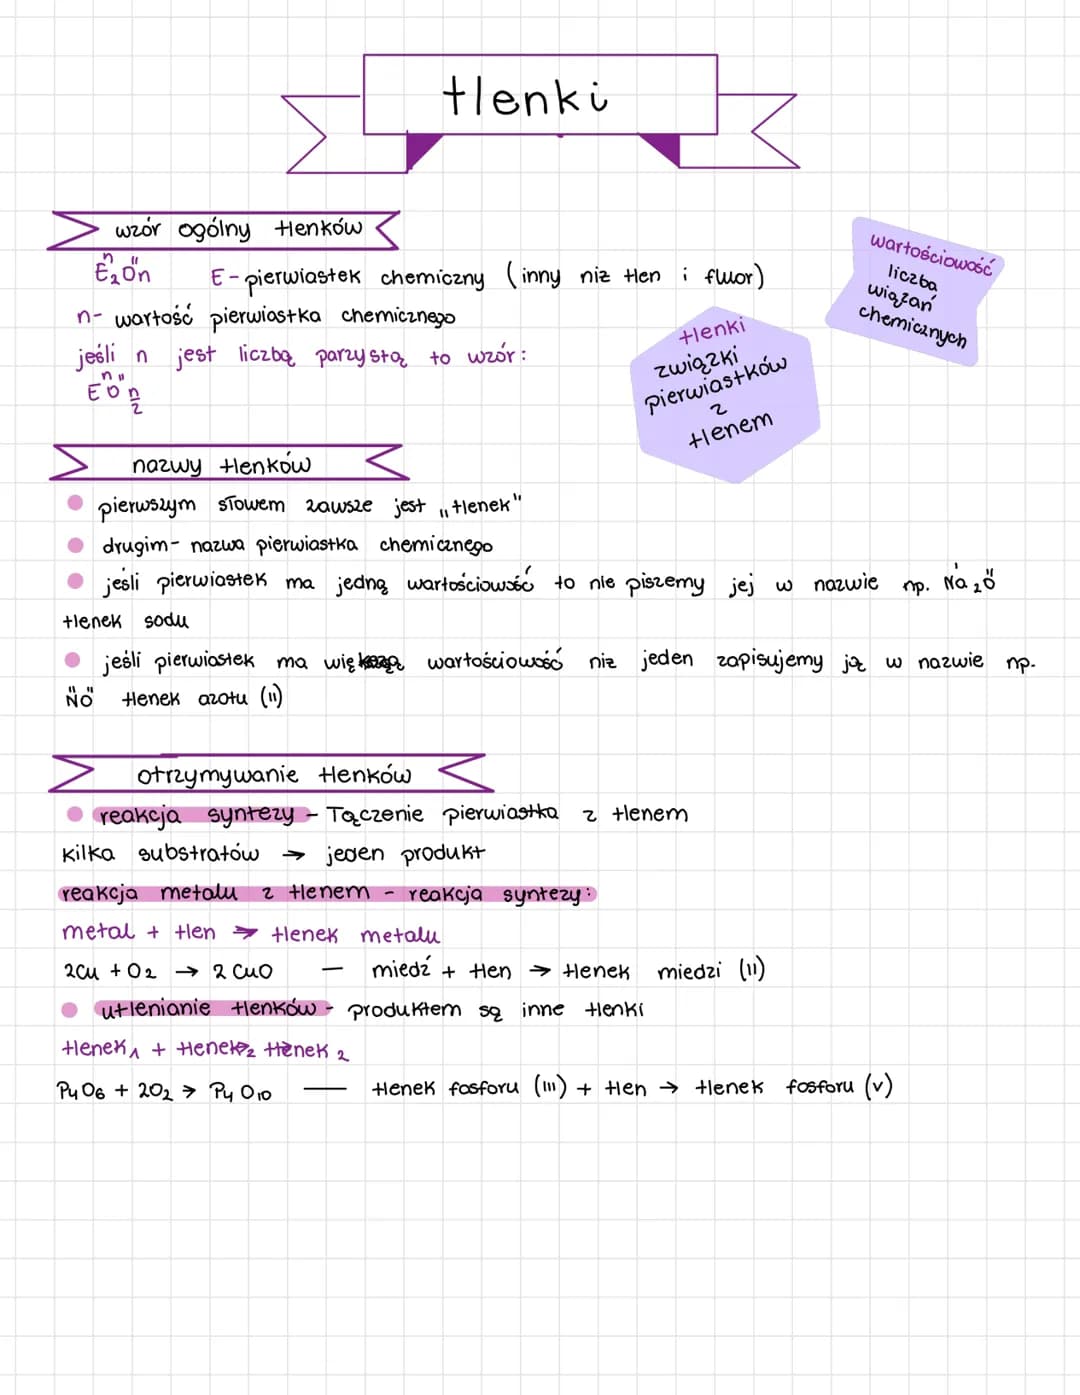 tlenki
wzór ogólny tlenków
n II
E₂On
E - pierwiastek chemiczny (inny niż tlen i fluor)
n - wartość pierwiastka chemicznego
jeśli n jest liczbą parzystą to wzór:
n II
E O n/2
wartościowość
liczba
wiązań
chemicznych
tlenki
związki
pierwiastków
z
tlenem
nazwy tlenków
pierwszym słowem zawsze jest „tlenek"
drugim - nazwa pierwiastka chemicznego
jeśli pierwiastek ma jedną wartościowość to nie piszemy jej w nazwie np. Na₂O
tlenek sodu
jeśli pierwiastek ma większą wartościowość niż jeden zapisujemy ją w nazwie np.
NO tlenek azotu (II)
otrzymywanie tlenków
reakcja syntezy - łączenie pierwiastka z tlenem
kilka substratów → jeden produkt
reakcja metalu z tlenem - reakcja syntezy:
metal + tlen → tlenek metalu
2Cu + O₂ → 2 CuO — miedź + tlen → tlenek miedzi (II)
utlenianie tlenków - produktem są inne tlenki
tlenek₁ + tlenek₂ tlenek ₂
P₄O₆ + 2O₂ → P₄O₁₀ — tlenek fosforu (III) + tlen → tlenek fosforu (V)